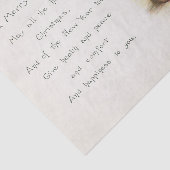 A Merry
May all the
Christmases,
And of the New Year too
Give health and peace
and comfort
And happyness to you.